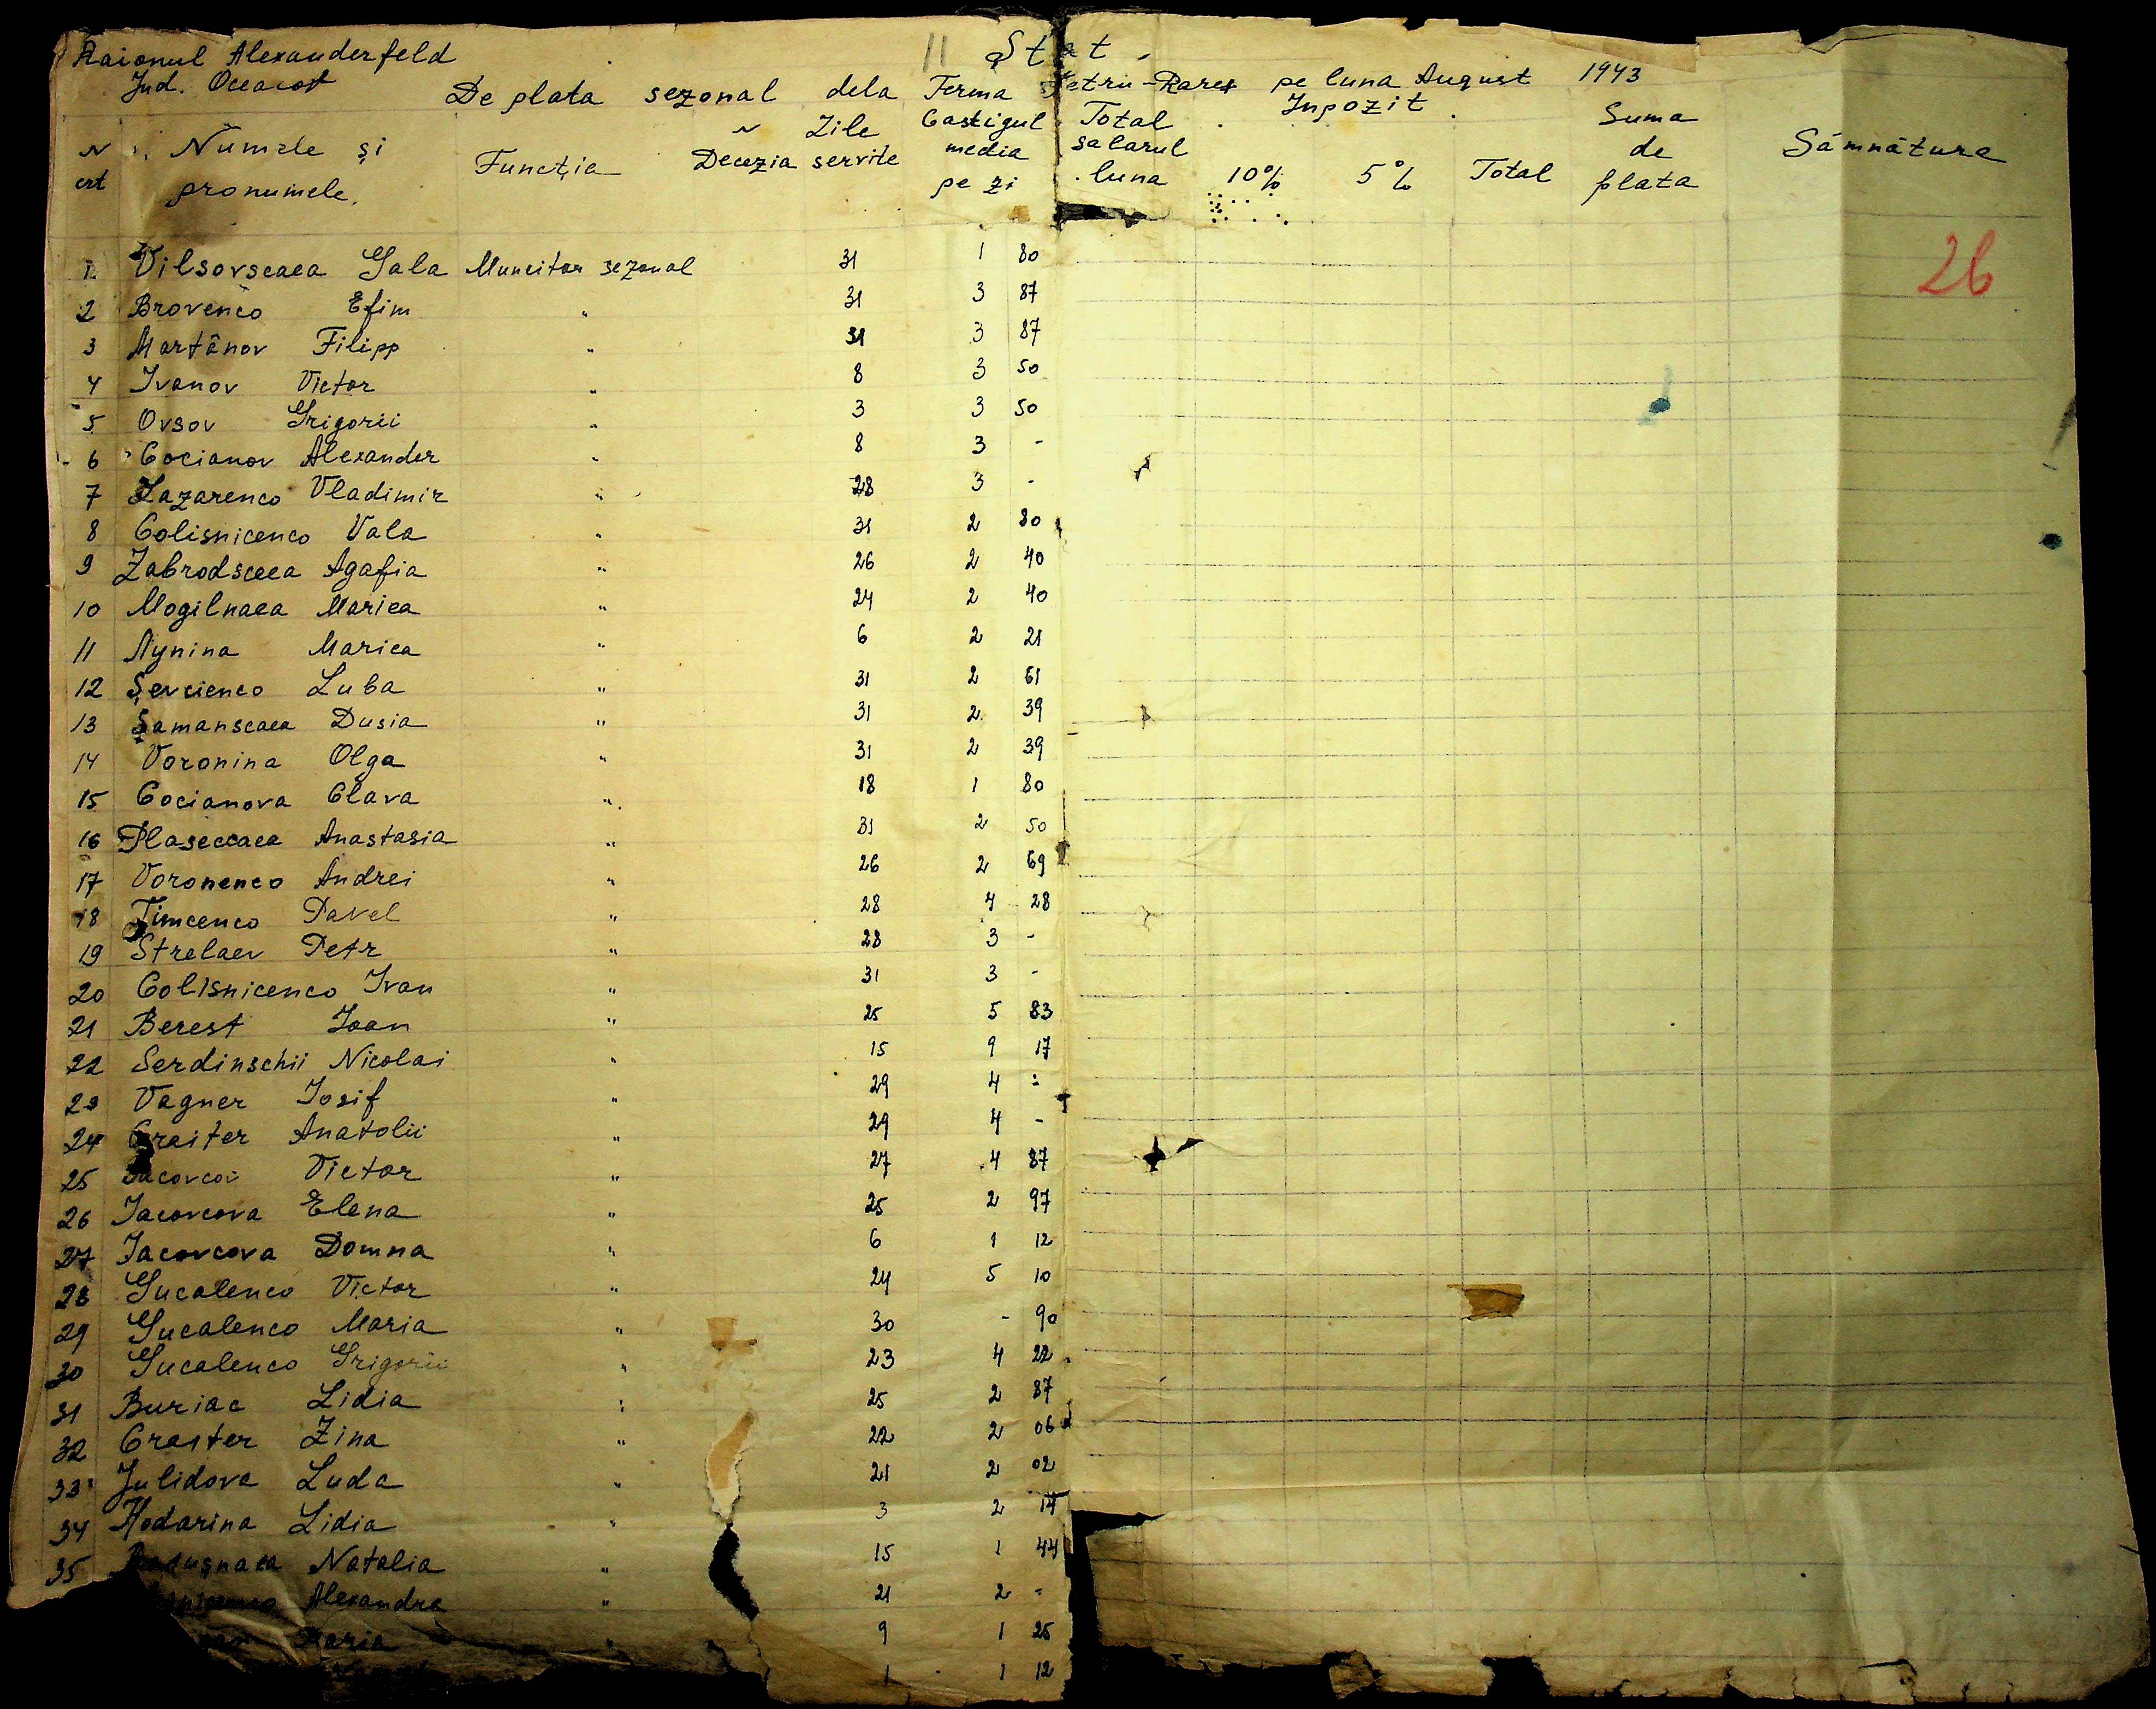 Raionul Alexanderfeld
Jud. Oceacov
11 Stat
De plata sezonal dela Ferma Petru-Rareș pe luna August 1943
N crt Numele și pronumele. Funcția N Decezia Zile servite Castigul media pe zi Total salarul luna Inpozit 10% 5% Total Suma de plata Sámnătura
26
1. Vilsovscaea Gala Muncitor sezonal 31 1 80
2 Brovenco Efim " 31 3 87
3 Martânov Filipp " 31 3 87
4 Ivanov Victor " 8 3 50
5 Ovsov Grigorii " 3 3 50
6 Cocianov Alexander " 8 3 -
7 Lazarenco Vladimir " 28 3 -
8 Colisnicenco Vala " 31 2 80
9 Zabrodsceea Agafia " 26 2 40
10 Mogilnaea Mariea " 24 2 40
11 Nynina Mariea " 6 2 21
12 Șevcienco Luba " 31 2 61
13 Șamanscaea Dusia " 31 2 39
14 Voronina Olga " 31 2 39
15 Cocianova Clava " 18 1 80
16 Plaseccaea Anastasia " 31 2 50
17 Voronenco Andrei " 26 2 69
18 Timcenco Pavel " 28 4 28
19 Strelaev Petr " 28 3 -
20 Colisnicenco Ivan " 31 3 -
21 Berest Ioan " 25 5 83
22 Serdinschii Nicolai " 15 9 17
23 Vagner Iosif " 29 4 -
24 Craiter Anatolii " 29 4 -
25 Iacovcov Victor " 27 4 87
26 Iacovcova Elena " 25 2 97
27 Iacovcova Domna " 6 1 12
28 Gucalenco Victor " 24 5 10
29 Gucalenco Maria " 30 - 90
30 Gucalenco Grigorii " 23 4 22
31 Buriac Lidia " 25 2 87
32 Craiter Zina " 22 2 06
33 Julidova Luda " 21 2 02
34 Hodarina Lidia " 3 2 14
35 Natalia " 15 1 44
Alexandra " 21 2 -
Maria " 9 1 25
1 1 12